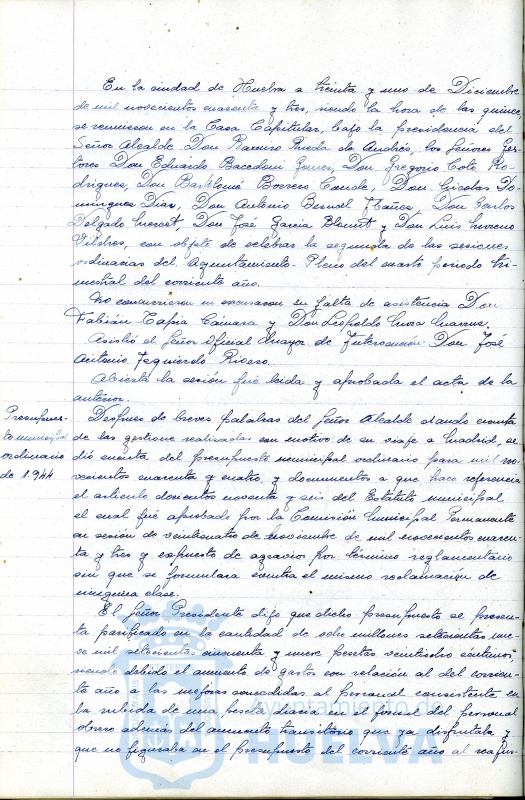 En la ciudad de Huelva a treinta y uno de Diciembre
de mil novecientos cuarenta y tres, siendo la hora de las quince,
se reunieron en la Casa Capitular, bajo la presidencia del
Señor Alcalde Don Ramiro Rueda de Andrés, los Señores Ges-
tores Don Eduardo Baccedoni Gomez, Don Gregorio Coto Ro-
driguez, Don Bartolomé Borrero Conde, Don Nicolas Do-
minguez Diaz, Don Antonio Bernal Mañes, Don Carlos
Delgado, Don José Garcia y Don Luis Moreno
, con objeto de celebrar la segunda de las sesiones
ordinarias del Ayuntamiento Pleno del cuarto periodo tri-
mestral del corriente año.
No concurrieron ni excusaron su falta de asistencia Don
Fabián Tapia Cámara y Don Leopoldo
Asistió el Señor Oficial Mayor de Intervención Don José
Antonio Izquierdo Rioso.
Abierta la sesión fué leida y aprobada el acta de la
anterior.
Presupues-
to municipal
ordinario
de 1.944
Despues de breves palabras del Señor Alcalde dando cuenta
de las gestiones realizadas con motivo de su viaje a Madrid, se
dió cuenta del Presupuesto municipal ordinario para mil no-
vecientos cuarenta y cuatro, y documentos a que hace referencia
el articulo doscientos noventa y seis del Estatuto municipal,
el cual fué aprobado por la Comisión Municipal Permanente
en sesión de veinticuatro de noviembre de mil novecientos cuaren-
ta y tres y expuesto de agravios por término reglamentario
sin que se formulara contra el mismo reclamación de
ninguna clase.
El Señor Presidente dijo que dicho presupuesto se presen-
ta parificado en la cantidad de ocho millones setecientos nue-
ve mil setecientos cincuenta y nueve pesetas veintiocho céntimos,
siendo debido el aumento de gastos con relación al del corrien-
te año a las mejoras concedidas al personal consistente en
la subida de una peseta diaria en el jornal del personal
obrero además del aumento transitorio que ya disfrutaba y
que no figuraba en el presupuesto del corriente año al
Ayuntamiento de
HUELVA